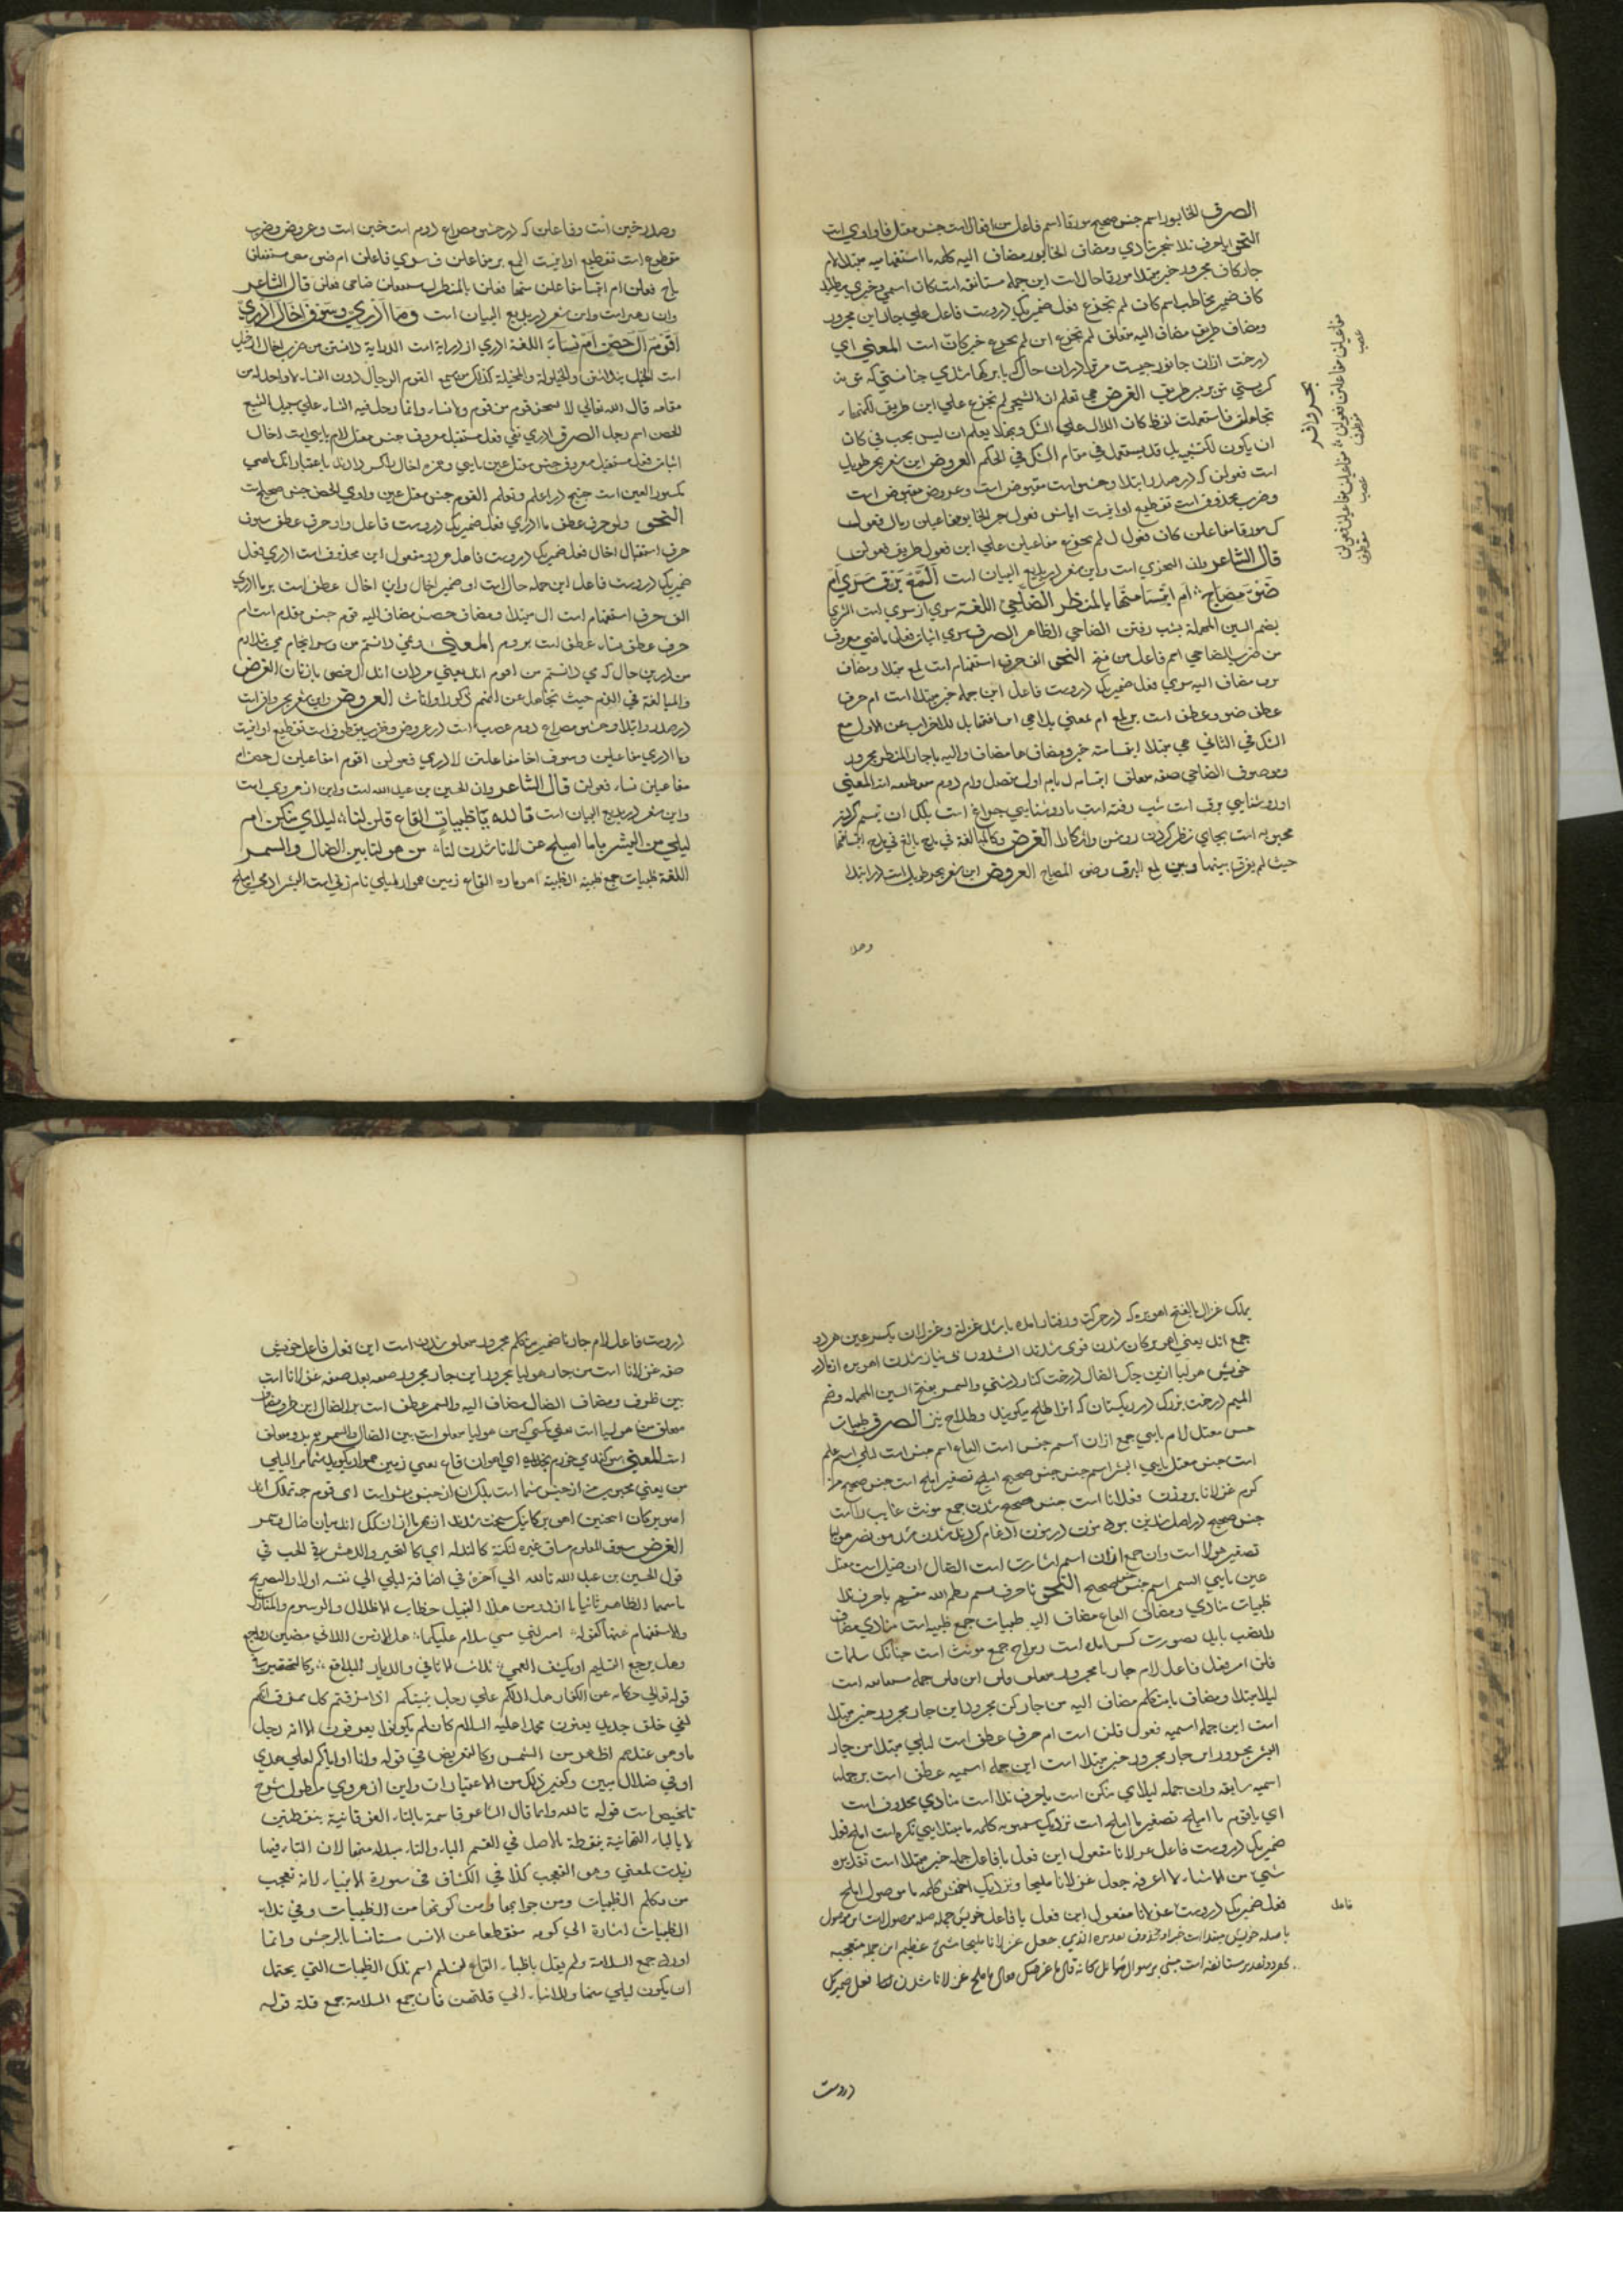 الصرف الخابور اسم جنس صحيح مورقا اسم فاعل من افعال است جنس معتل فا واوي است
النحو يا حرف ندا شجر منادي ومضاف الخابور مضاف اليه كلمه ما استفهاميه مبتدا لام
جار كاف مجرور خبر مبتدا مورقا حال است اين جمله مستانفه است كان اسمي وخبري ميطلبد
كاف ضمير مخاطب اسم كان لم تجزع فعل ضمير يك دروست فاعل علي جار ابن مجرور
ومضاف طريف مضاف اليه متعلق لم تجزع اين لم تجزع خبر كان است المعني اي
درخت ازان جانور چيست مر ترا دران حال كه با برگها شدي
كريستي تو بر پسر طريف الغرض هي تعلم ان الشجر لم تجزع علي ابن طريف لكنها
تجاهلت فاستعملت لفظ كان الدال علي الشك وبهذا يعلم ان ليس يجب في كان
ان يكون للتشبيه بل قد يستعمل في مقام الشك في الحكم العروض اين شعر بحر طويل
است فعولن كه در صدر وابتدا وحشو است مقبوض است وعروض مقبوض است
وضرب محذوف است تقطيع او اينست ايا شج فعول خابو مفاعيلن رمال فعولن
ك مورقا مفاعلن كان فعول ل لم تجزع مفاعيلن علي ابن فعول طريف فعولن
قال الشاعر وان البحتري است واين شعر در بديع البيان است المع برق سري ام
ضوء مصباح ام ابتسامتها بالمنظر الضاحي اللغة سري از سري است السري
بضم السين المهملة بشب رفتن الضاحي الظاهر الصرف سري اثبات فعل ماضي معروف
من ضرب الضاحي اسم فاعل من فتح النحو الف حرف استفهام است لمع مبتدا ومضاف
برق مضاف اليه سري فعل ضمير يك دروست فاعل اين جمله خبر مبتدا است ام حرف
عطف ضوء وعطف است بر لمع ام بمعني بل
الشك في الثاني هي مبتدا ابتسامته خبر ومضاف ها مضاف واليه با جار المنظر مجرور
وموصوف الضاحي صفه متعلق ابتسامه المعني
او روشنايي برق است شب رفته است يا روشنايي چراغ است بلكه ان تبسم كردن
محبوبه است بجاي نظر كردن روشن واشكارا الغرض وكالمبالغة في مدح بالغ في مدح ابتسامها
حيث لم يفرق بينها وبين لمع البرق وضوء المصباح العروض اين شعر بحر طويل است در ابتدا
وصدر
بحر وافر
مفاعيلن مفاعلتن فعولن مفاعيلن مفاعيلن فعولن
عصب مقطوف عصب مقطوف
وصدر خبن است وفاعلن كه در حشو مصراع دوم است خبن است وعروض وضرب
مقطوع است تقطيع او اينست المع بر مفاعلن ق سري فاعلن ام ضوء مص مستفعلن
باح فعلن ام ابتسا مفاعلن متها فعلن بالمنظرل مستفعلن ضاحي فعلن قال الشاعر
وان زهير است واين شعر در بديع البيان است وما ادري وسوف اخال ادري
اقوم ال حصن ام نساء اللغة ادري از دراية است الدراية دانستن من ضرب اخال از خيل
است الخيل پنداشتن والخيلولة والمخيلة كذلك من سمع القوم الرجال دون النساء لا واحد له من
مقامه قال الله تعالي لا يسخر قوم من قوم ولا نساء وانما دخل فيه النساء علي سبيل التبع
الحصن اسم رجل الصرف ادري نفي فعل مستقبل معروف جنس معتل لام يايي است اخال
اثبات فعل مستقبل معروف جنس معتل عين يايي وهمزه اخال با كسر دارند باعتبار انك ماضي
مكسور العين است چنانچه در اعلم وتعلم القوم جنس معتل عين واوي الحصن جنس صحيح است
النحو واو حرف عطف ما ادري فعل ضمير يك دروست فاعل واو حرف عطف سوف
حرف استقبال اخال فعل ضمير يك دروست فاعل هر دو مفعول اين محذوف است ادري فعل
ضمير يك دروست فاعل اين جمله حال است از ضمير اخال واين اخال عطف است بر ما ادري
الف حرف استفهام است ال مبتدا ومضاف حصن مضاف اليه قوم خبر مقدم است ام
حرف عطف نساء عطف است بر قوم المعني ونمي دانستم من وسرانجام
من درين حال كه مي دانستم من اقوم اند يعني مردان اند ال حصن يا زنان الغرض
والمبالغة في الذم حيث تجاهل عن انهم ذكور او اناث العروض واين شعر بحر وافر است
در صدر وابتدا وحشو مصراع دوم عصب است در عروض وضرب مقطوف است تقطيع او اينست
وما ادري مفاعيلن وسوف اخا مفاعلتن ل ادري فعولن اقوم ا مفاعيلن ل حصن ام
مفاعيلن نساء فعولن قال الشاعر وان الحسين بن عبد الله است واين از عروي است
واين شعر در بديع البيان است تالله يا ظبيات القاع قلن لنا ليلاي منكن ام
ليلي من البشر ياما اميلح غزلانا شدن لنا من هوليا بين الضال والسمر
اللغة ظبيات جمع ظبية الظبية اهو ماده القاع زمين هموار ليلي نام زني است البشر ادمي اميلح
بملك غزال بالفتح اهو بره كه در حركت ورفتار امده باشد غزلة وغزلان بكسر عين هر دو
جمع اند يعني اهو برگان شدن قوي شدند الشدون بي نياز شدن اهو بره از مادر
خويش هوليا اين جك الضال درخت كنار دشتي والسمر بفتح السين المهمله وضم
الميم درخت بزرگ در ريگستان كه انرا طلح ميگويند وطلاح نيز الصرف ظبيات
جنس معتل لام يايي جمع ازان اسم جنس است القاع اسم جنس است ليلي اسم علم
است جنس معتل يايي البشر اسم جنس جنس صحيح اميلح تصغير املح است جنس صحيح من
كرم غزلانا بروزن فعلانا است جنس صحيح شدن جمع مونث غايب
جنس صحيح در اصل شدنن بود نون در نون ادغام كردند شدن شد من نصر هوليا
تصغير هولا است وان جمع ازان اسم اشارت است الضال ان ضيل است معتل
عين يايي السمر اسم جنس صحيح النحو تا حرف قسم الله مقسم يا حرف ندا
ظبيات منادي ومضاف القاع مضاف اليه ظبيات جمع ظبيه است منادي مضاف
را نصب بايد بصورت كسر امده است زيراچه جمع مونث است چنانك مسلمات
قلن امر فعل فاعل لام جار نا مجرور متعلق قلن اين قلن جمله
ليلا مبتدا ومضاف يا متكلم مضاف اليه من جار كن مجرور اين جار مجرور خبر مبتدا
است اين جمله اسميه مفعول قلن است ام حرف عطف است ليلي مبتدا من جار
البشر مجرور اين جار مجرور خبر مبتدا است اين جمله اسميه عطف است بر جمله
اسميه سابقه وان جمله ليلاي منكن است يا حرف ندا است منادي محذوف است
اي يا قوم ما اميلح تصغير ما املح است نزديك سيبويه كلمه ما مبتدا يعني نكره است املح فعل
ضمير يك دروست فاعل غزلانا مفعول اين فعل با فاعل جمله خبر مبتدا است تقديره
شيء من الاشياء لا اعرفه جعل غزلانا مليحا ونزديك اخفش كلمه ما موصول املح
فعل ضمير يك دروست غزلانا مفعول اين فعل با فاعل خويش جمله صله موصول است اين موصول
با صله خويش مبتدا است خبر او محذوف تقديره الذي جعل غزلانا مليحا شيء عظيم اين جمله متعجبه
بهر دو تقدير مستانفه است مبني بر سوال سائل كانه قال ما غرضك فقال ما املح غزلانا شدن لنا فعل ضمير يك
فاعل
دروست
دروست فاعل لام جار نا ضمير متكلم مجرور متعلق شدن است اين فعل فاعل خويش
صفه غزلانا است من جار هوليا مجرور اين جار مجرور صفه بعد صفه غزلانا است
بين ظرف ومضاف الضال مضاف اليه والسمر عطف است بر الضال اين ظرف مضاف
متعلق من هوليا است يعني كسي كه من هوليا متعلق است بين الضال والسمر هم بدو متعلق
است المعني سوگند مي خورم بخداي اي اهوان قاع يعني زمين هموار بگوييد شما مرا ليلي
من يعني محبوب من از جنس شما است بلك ان از جنس بشر است اي قوم چه نمك اند
اهو برگان اينچنين اهو برگانيك سخت شدند از بهر ما از ان كك اند ميان ضال وسمر
الغرض سوق المعلوم مساق غيره لنكتة كالتدله اي كالتحير والدهش في الحب في
قول الحسين بن عبد الله تالله الي آخره في اضافة ليلي الي نفسه اولا والتصريح
باسمها الظاهر ثانيا ما از درمن هذا القبيل خطاب الاطلال والرسوم والمنازل
والاستفهام عنها كقوله امنزلتي مي سلام عليكما هل الازمن اللاتي مضين رواجع
وهل يرجع التسليم او يكشف العمي ثلاث الاثافي والديار البلاقع وكالتحقير
قوله تعالي حكاية عن الكفار هل ندلكم علي رجل ينبئكم اذا مزقتم كل ممزق انكم
لفي خلق جديد يعنون محمدا عليه السلام كان لم يكونوا يعرفون الا انه رجل
ما وهو عندهم اظهر من الشمس وكالتعريض في قوله وانا او اياكم لعلي هدي
او في ضلال مبين وكغير ذلك من الاعتبارات واين از عروي مطول شرح
تلخيص است قوله تالله وانما قال الشاعر قاسمة بالتاء الفوقانية بنقطتين
لا بالباء التحتانية بنقطة بالاصل في القسم الباء والتاء مبدلة منها لان التاء فيها
زيادت لمعني وهو التعجب كذا في الكشاف في سورة الانبياء لانه تعجب
من تكلم الظبيات ومن جوابها ومن كونها من الظبيات وفي نداء
الظبيات اشارة الي كونه منقطعا عن الانس مستانسا بالوحش وانما
اورد جمع السلامة ولم يقل يا ظباء القاع ليعلم اسم تلك الظبيات التي يحتمل
ان يكون ليلي منها وللانباء الي قلتهن فان جمع السلامة جمع قلة قوله